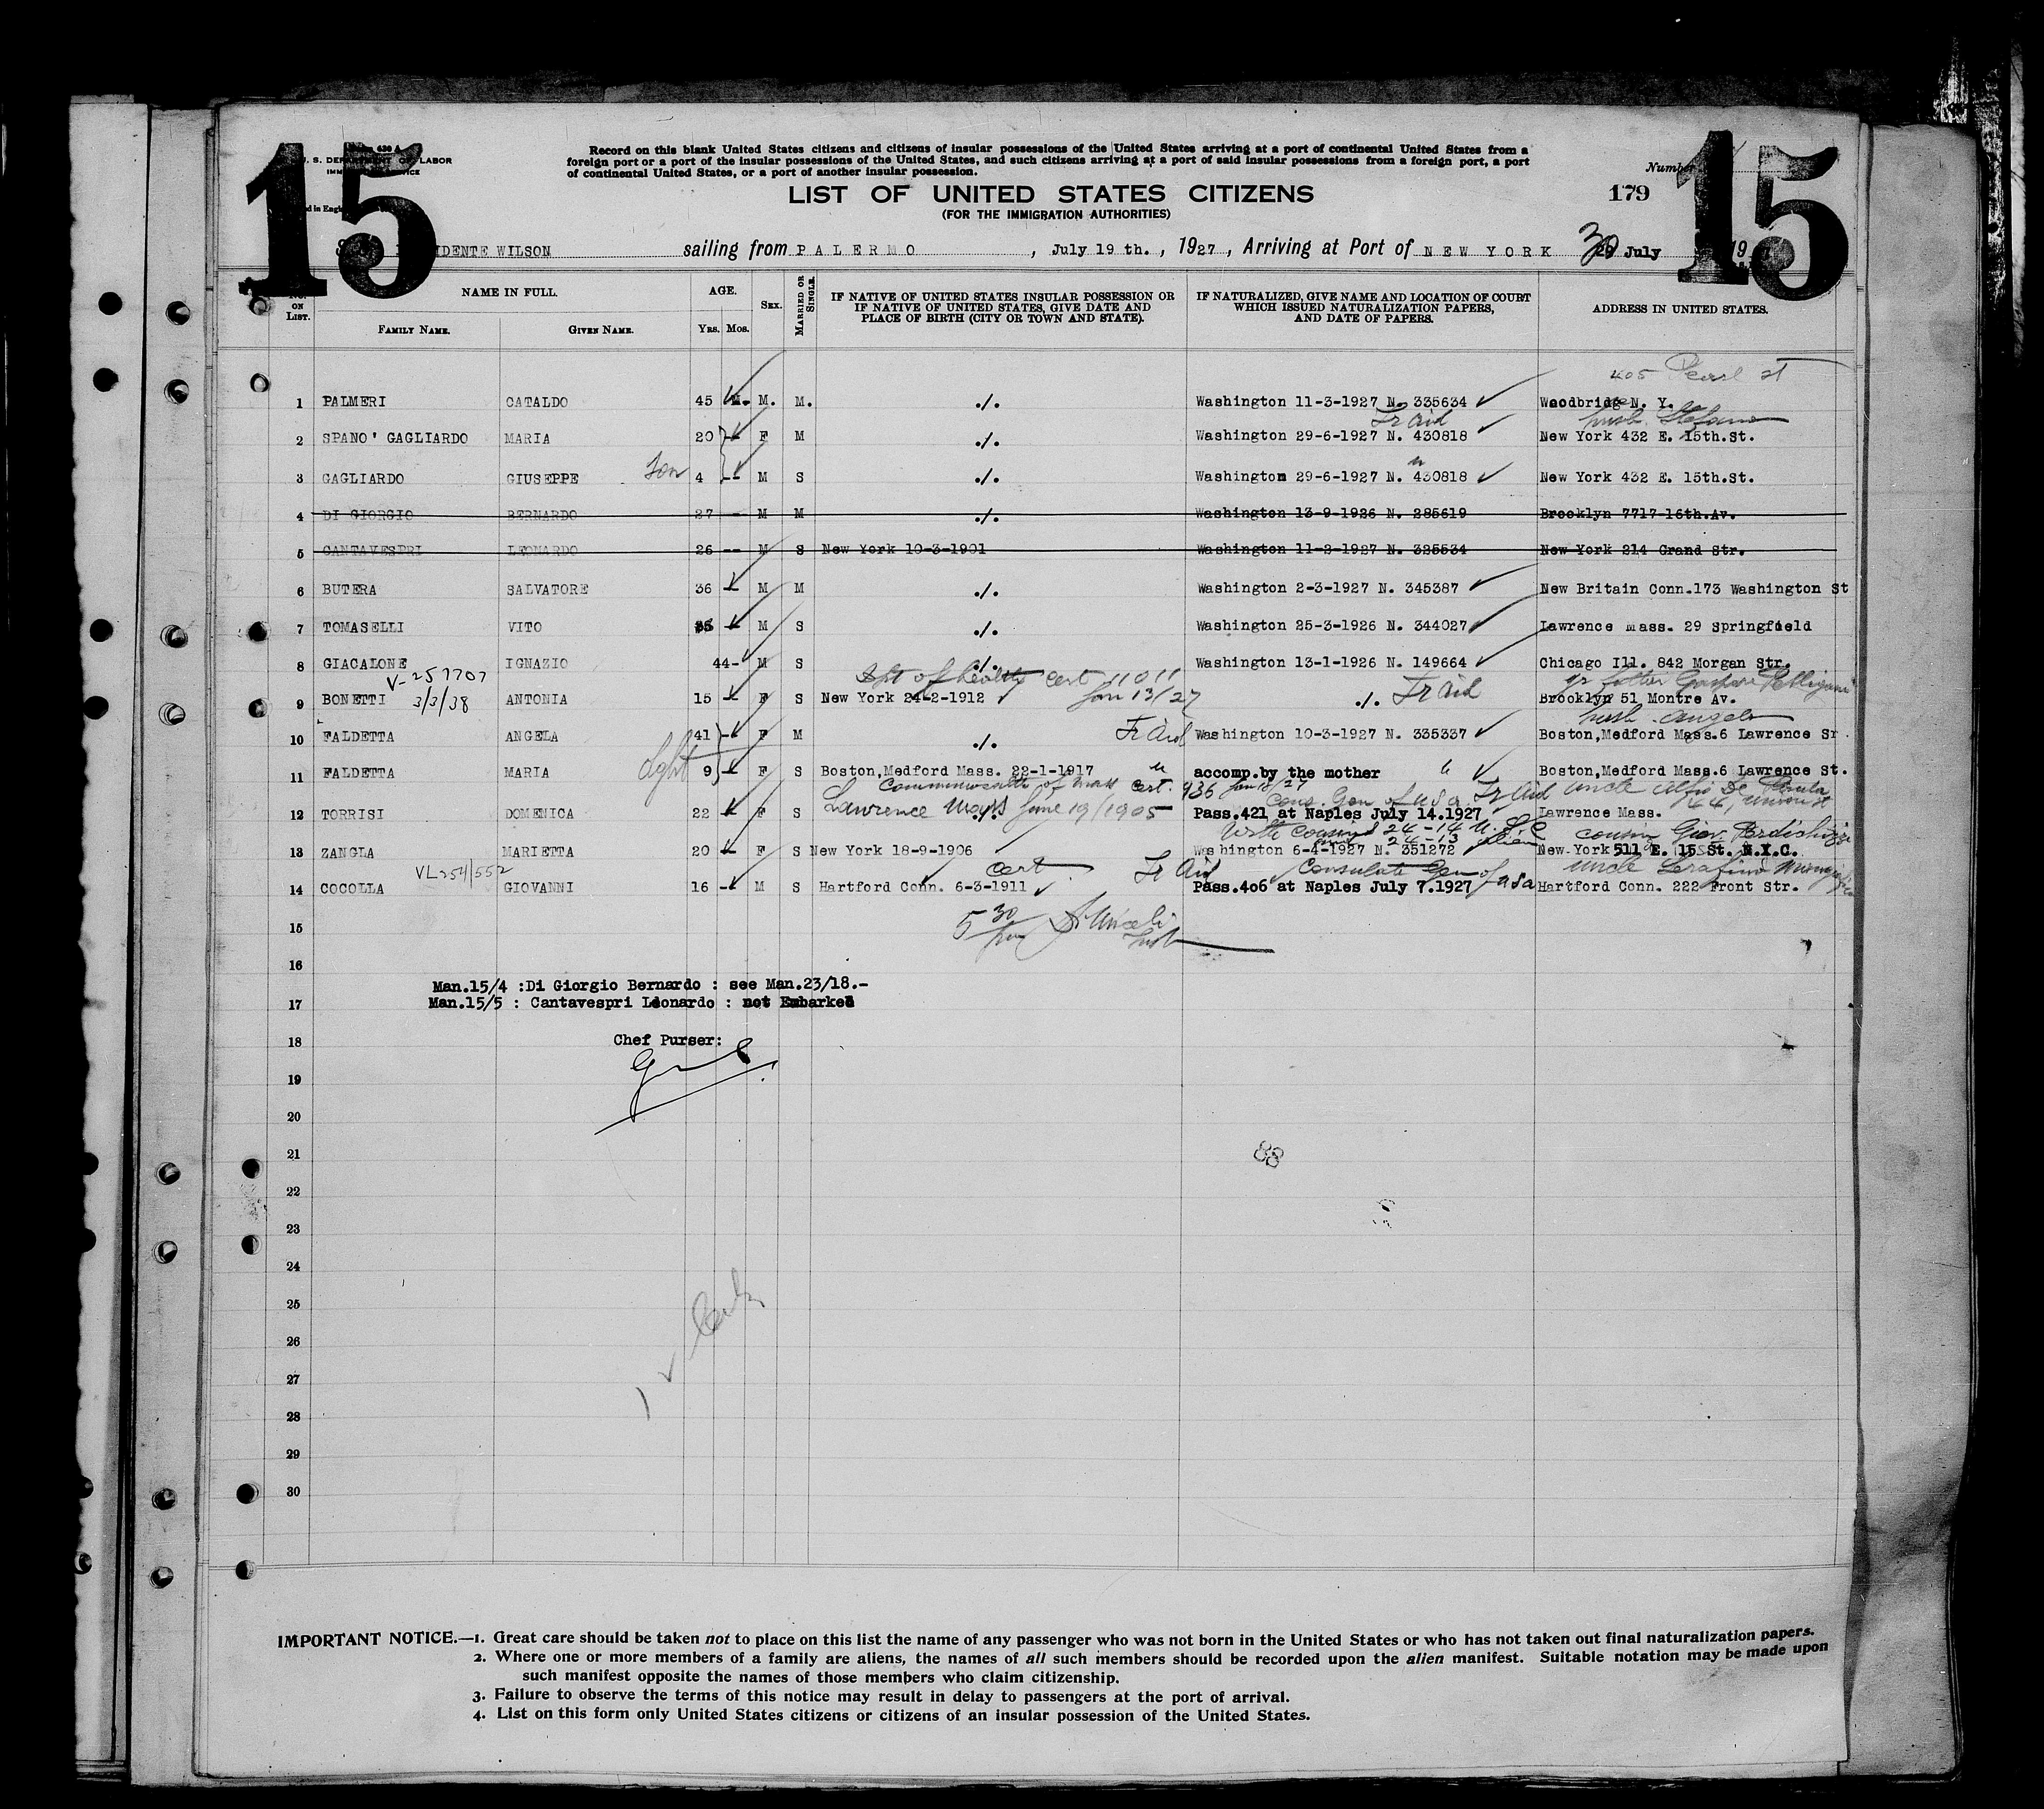 15
15
Record on this blank United States citizens and citizens of insular possessions of the United States arriving at a port of continental United States from a
foreign port or a port of the insular possessions of the United States, and such citizens arriving at a port of said insular possessions from a foreign port, a port
of continental United States, or a port of another insular possession.
U. S. DEPARTMENT OF LABOR
Number
LIST OF UNITED STATES CITIZENS
179
(FOR THE IMMIGRATION AUTHORITIES)
IDENTE WILSON sailing from PALERMO , July 19 th. , 1927 , Arriving at Port of NEW YORK 30 July 19
No. ON LIST.
NAME IN FULL.
FAMILY NAME. GIVEN NAME.
AGE.
YRS. MOS.
SEX.
MARRIED OR SINGLE.
IF NATIVE OF UNITED STATES INSULAR POSSESSION OR
IF NATIVE OF UNITED STATES, GIVE DATE AND
PLACE OF BIRTH (CITY OR TOWN AND STATE).
IF NATURALIZED, GIVE NAME AND LOCATION OF COURT
WHICH ISSUED NATURALIZATION PAPERS,
AND DATE OF PAPERS.
ADDRESS IN UNITED STATES.
405 Pearl st
1 PALMERI CATALDO 45 M. M. M. ./. Washington 11-3-1927 N. 335634 Woodbridge N. Y.
Tr Aid husb. Stefano
2 SPANO' GAGLIARDO MARIA 20 -- F M ./. Washington 29-6-1927 N. 430818 New York 432 E. 15th.St.
3 GAGLIARDO GIUSEPPE Son 4 -- M S ./. Washington 29-6-1927 N. 430818 New York 432 E. 15th.St.
4 DI GIORGIO BERNARDO 27 -- M M ./. Washington 13-9-1926 N. 285619 Brooklyn 7717-16th.Av.
5 CANTAVESPRI LEONARDO 26 -- M S New York 10-3-1901 Washington 11-2-1927 N. 325534 New York 214 Grand Str.
6 BUTERA SALVATORE 36 -- M M ./. Washington 2-3-1927 N. 345387 New Britain Conn.173 Washington St
7 TOMASELLI VITO -- M S ./. Washington 25-3-1926 N. 344027 Lawrence Mass. 29 Springfield
8 GIACALONE IGNAZIO 44- M S ./. Washington 13-1-1926 N. 149664 Chicago Ill. 842 Morgan Str.
V-257707 Dpt of health cert 11011 gr father Gaspare
9 BONETTI 3/3/38 ANTONIA 15 -- F S New York 24-2-1912 Jan 13/27 ./. Tr Aid Brooklyn 51 Montre Av.
husb. Angelo
10 FALDETTA ANGELA 41 -- F M ./. Tr Aid Washington 10-3-1927 N. 335337 Boston,Medford Mass.6 Lawrence Sr.
11 FALDETTA MARIA dght 9 -- F S Boston,Medford Mass. 22-1-1917 " accomp.by the mother " Boston,Medford Mass.6 Lawrence St.
Commonwealth of Mass Cert. 936 Jan 18/27 Cons. Gen of USA Tr Aid uncle Alfio De
12 TORRISI DOMENICA 22 -- F S Lawrence Mass June 19/1905 Pass.421 at Naples July 14.1927 Lawrence Mass. 44, Union st
With cousins 24-14 U.S.C. 24-13 alien cousin Giov.
13 ZANGLA MARIETTA 20 -- F S New York 18-9-1906 Washington 6-4-1927 N. 351272 New York 511 E. 15 St. N.Y.C.
VL254/552 cert Tr Aid Consulate Gen of USA uncle Serafino
14 COCOLLA GIOVANNI 16 -- M S Hartford Conn. 6-3-1911 Pass.406 at Naples July 7.1927 Hartford Conn. 222 Front Str.
15 5 30
16
Man.15/4 :Di Giorgio Bernardo : see Man.23/18.-
17 Man.15/5 : Cantavespri Leonardo : not Embarked
18 Chef Purser:
19
20
21
88
22
23
24
25
26
27
28
29
30
IMPORTANT NOTICE.—1. Great care should be taken not to place on this list the name of any passenger who was not born in the United States or who has not taken out final naturalization papers.
2. Where one or more members of a family are aliens, the names of all such members should be recorded upon the alien manifest. Suitable notation may be made upon
such manifest opposite the names of those members who claim citizenship.
3. Failure to observe the terms of this notice may result in delay to passengers at the port of arrival.
4. List on this form only United States citizens or citizens of an insular possession of the United States.